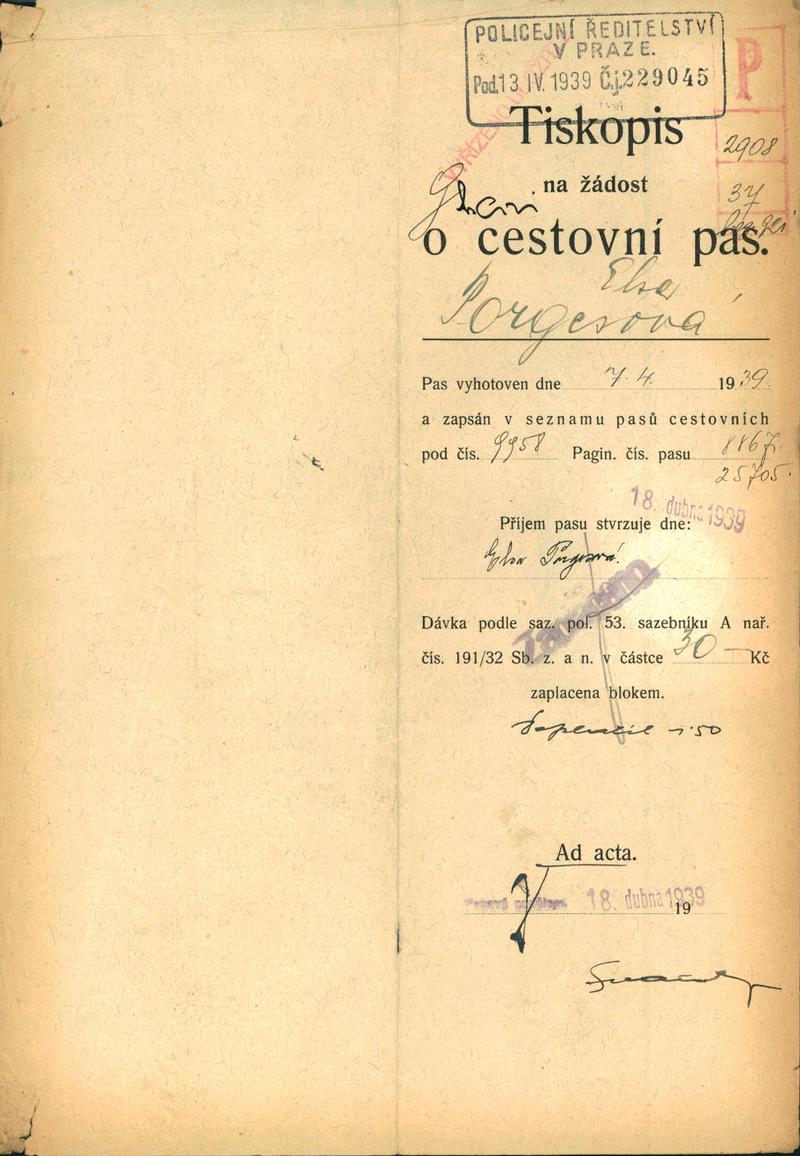 POLICEJNÍ ŘEDITELSTVÍ
V PRAZE.
Pod. 13 IV. 1939 Č.j. 229045
P
Tiskopis
2908
na žádost
37
o cestovní pas.
Elsa
Porgesová
Pas vyhotoven dne 7. 4. 1939.
a zapsán v seznamu pasů cestovních
pod čís. 9958 Pagin. čís. pasu 8867.
25705.
18. dubna 1939
Příjem pasu stvrzuje dne:
Elsa Porgesová.
Zaplaceno
Dávka podle saz. pol. 53. sazebníku A nař.
čís. 191/32 Sb. z. a n. v částce 30 — Kč
zaplacena blokem.
Ad acta.
18. dubna 1939
19